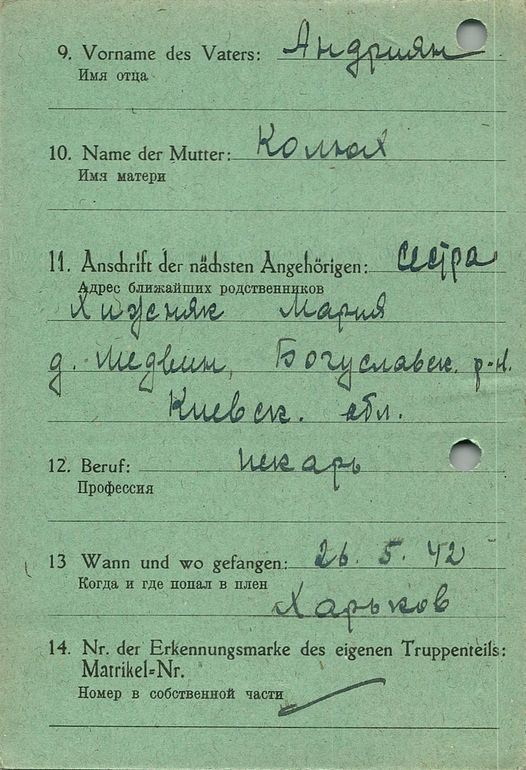 9. Vorname des Vaters: Андриян
Имя отца
10. Name der Mutter: Колюх
Имя матери
11. Anschrift der nächsten Angehörigen: сестра
Адрес ближайших родственников
Хижняк Мария
д. Медвин, Богуславск. р-н.
Киевск. обл.
12. Beruf: пекарь
Профессия
13 Wann und wo gefangen: 26. 5. 42
Когда и где попал в плен
Харьков
14. Nr. der Erkennungsmarke des eigenen Truppenteils:
Matrikel-Nr.
Номер в собственной части